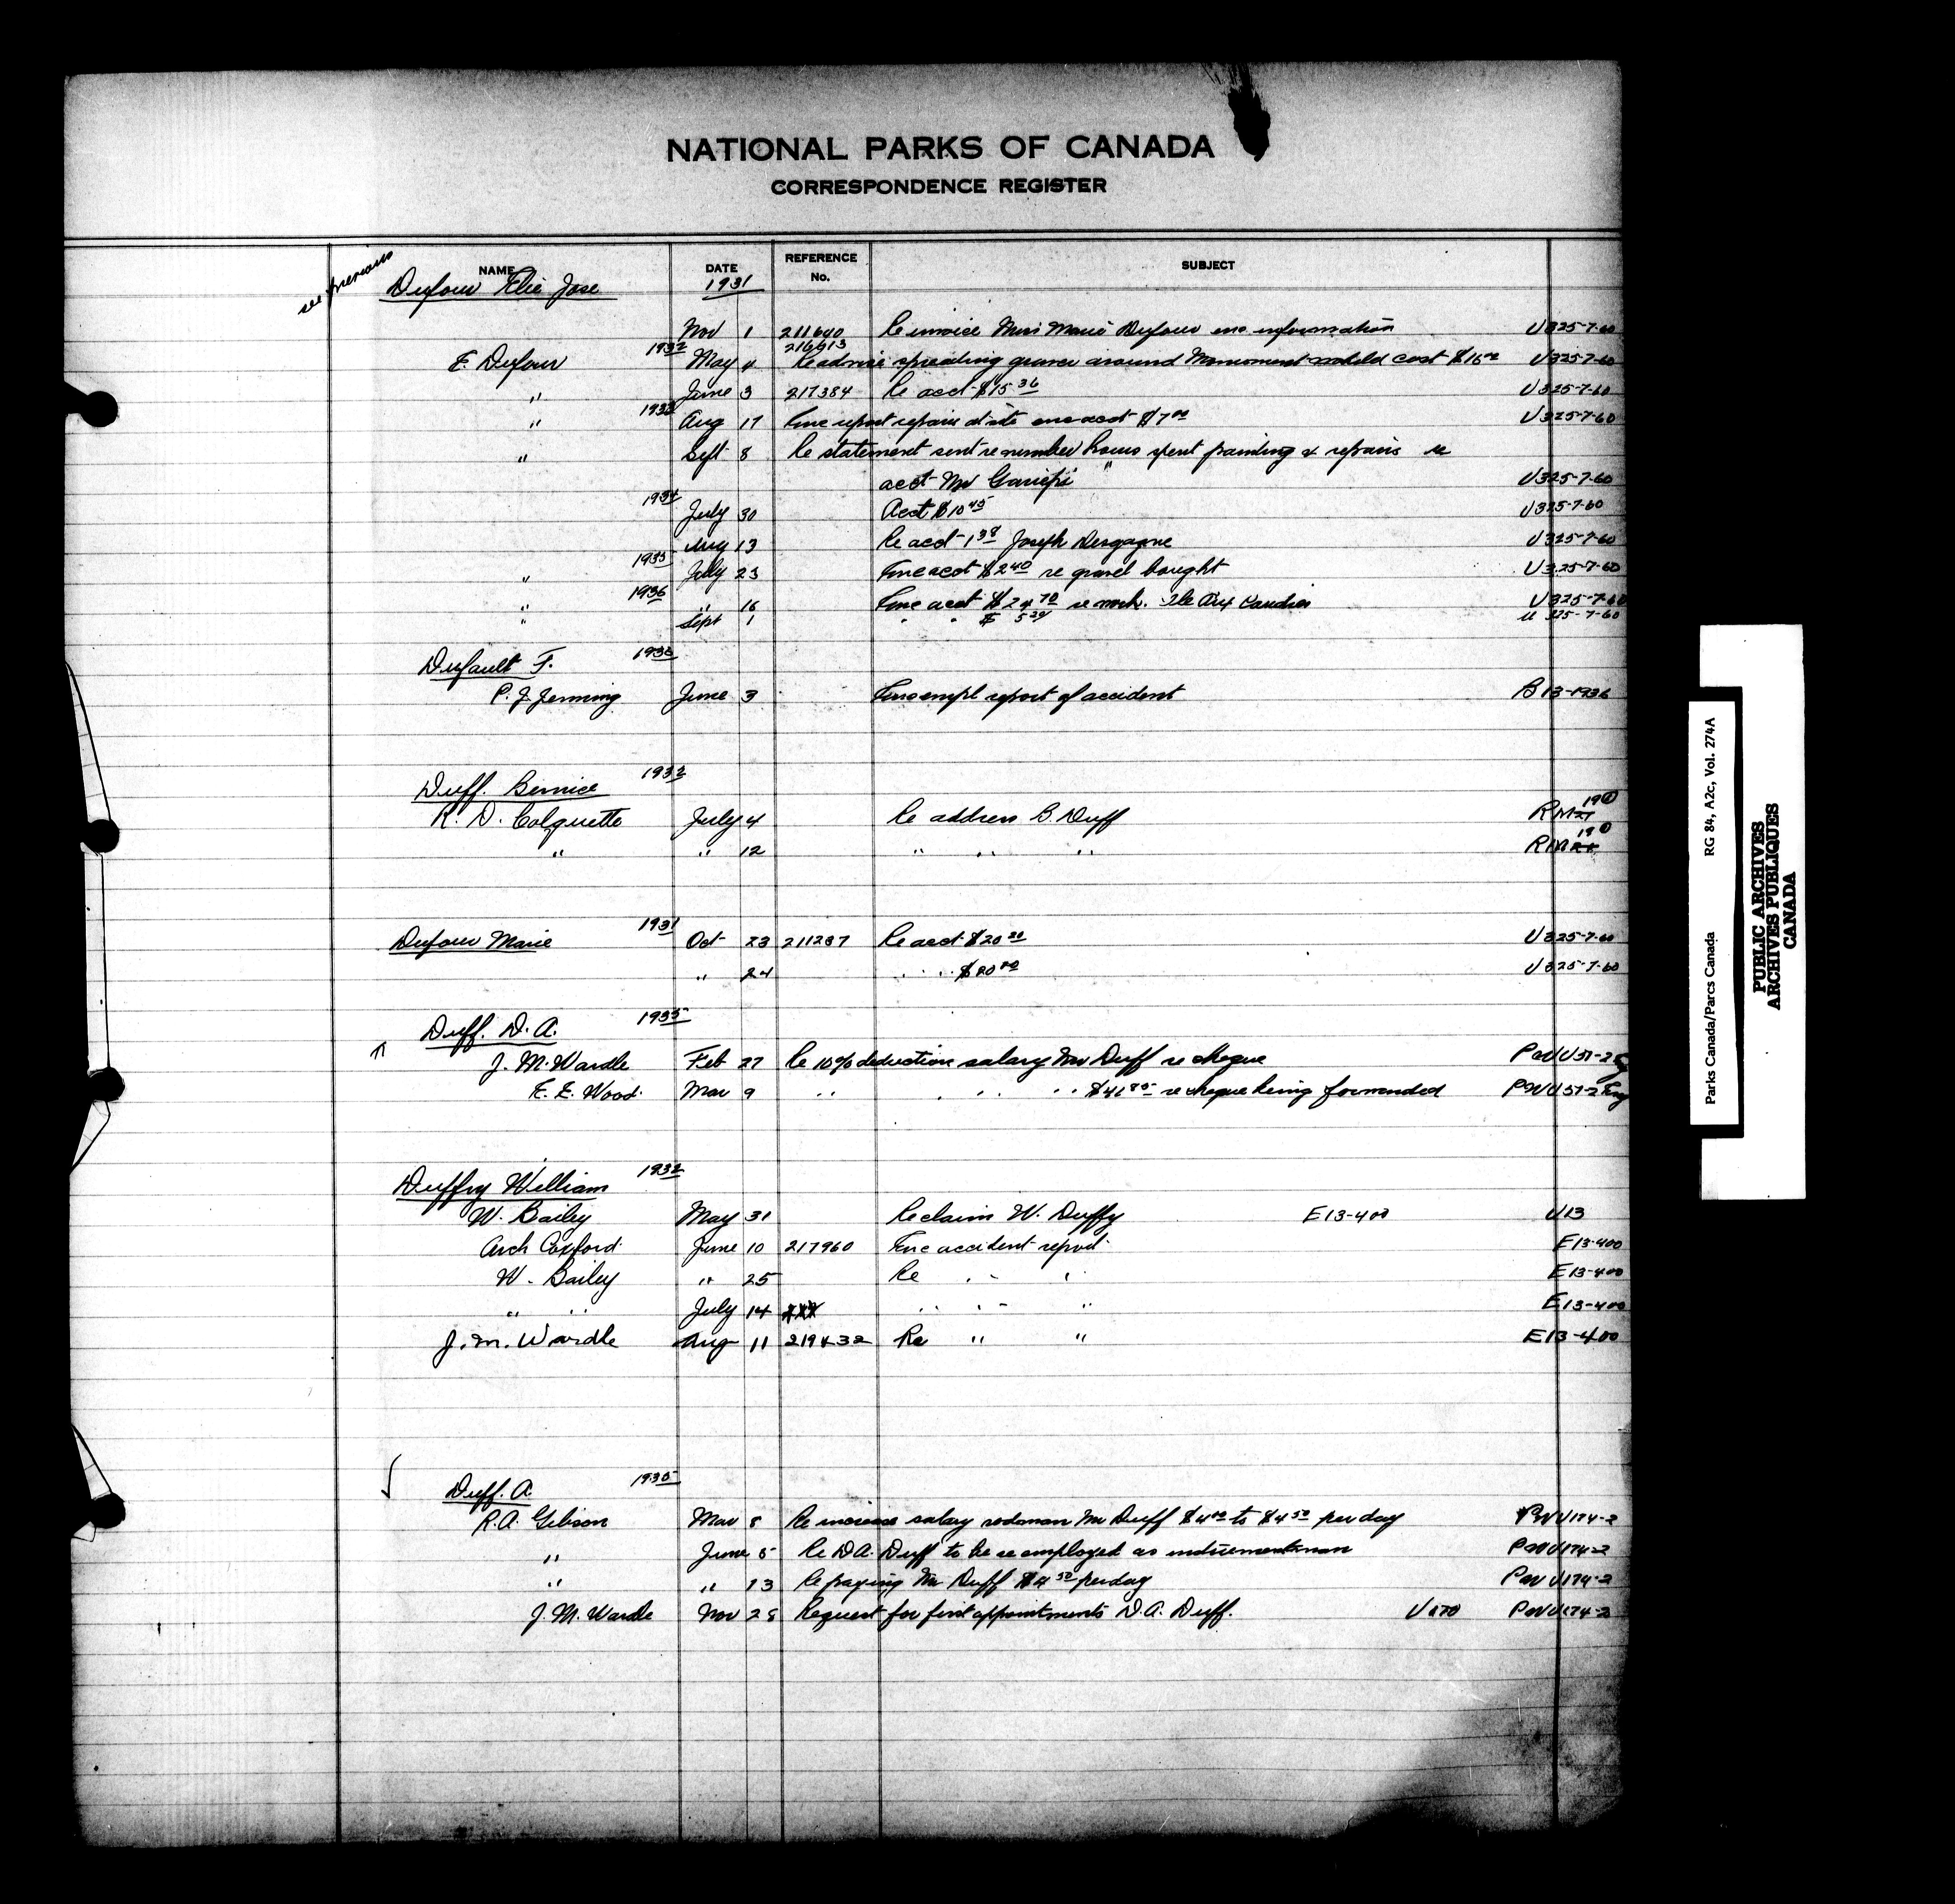 NATIONAL PARKS OF CANADA
CORRESPONDENCE REGISTER
NAME DATE REFERENCE No. SUBJECT
see previous
Dufour Elie Jose 1931
Nov 1 211640 Re invoice Miss Marie Dufour enc information U325-7-60
E. Dufour 1932 May 4 216613 Re advice spreading gravel around Monument would cost $16.00 U325-7-60
" June 3 217384 Re acct $15.36 U325-7-60
" 1933 Aug 17 Enc report repairs at site enc acct $7.00 U325-7-60
" Sept 8 Re statement sent re number hours spent painting & repairs re
acct Mr Gariepi U325-7-60
1934 July 30 Acct $10.45 U325-7-60
Aug 13 Re acct 1.38 Joseph Desgagne U325-7-60
" 1935 July 23 Enc acct $2.40 re gravel bought U325-7-60
" 1936 " 16 Enc acct $24.70 re work. Ile Aux Coudres U325-7-60
" Sept 1 " " $ 5.24 U 325-7-60
Dufault F. 1936
P. J. Jenning June 3 Enc empl report of accident B 13-1936
Duff. Bernice 1932
R. D. Colquette July 4 Re address B. Duff
" " 12 " " "
Dufour Marie 1931 Oct 23 211237 Re acct $20.20 U325-7-60
" 24 " " $20.20 U325-7-60
Duff. D. A. 1935
J. M. Wardle Feb 27 Re 10% deduction salary Mr Duff re cheque PWU37-2 Eng
E. E. Wood. Mar 9 " " " " $46.85 re cheque being forwarded PWU37-2 Eng
Duffy William 1932
W. Bailey May 31 Re claim W. Duffy E13-400 U13
Arch Coxford June 10 217960 Enc accident report E13-400
W. Bailey " 25 Re " " E13-400
" " July 14 xxx " " " E13-400
J. M. Wardle Aug 11 219432 Re " " E13-400
Duff. A. 1935
R. A. Gibson Mar 8 Re increase salary rodman Mr Duff $4.00 to $4.50 per day PWU174-2
" June 5 Re D.A. Duff to be re employed as instrumentman PWU174-2
" " 13 Re paying Mr Duff $4.50 per day PWU174-2
J. M. Wardle Nov 28 Request for first appointments D. A. Duff. U170 PWU174-2
Parks Canada/Parcs Canada RG 84, A2c, Vol. 274A
PUBLIC ARCHIVES
ARCHIVES PUBLIQUES
CANADA